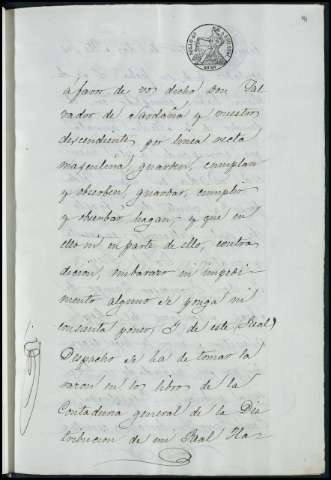 á favor de vos dicho Don Sal-
vador de Sardaña y vuestros
descendientes por linea recta
masculina guarden, cumplan
y observen, guardar, cumplir
y observar hagan, y que en
ello ni en parte de ello, contra
dicion, embarazo ni impedi-
mento alguno se ponga ni
consienta poner. Y de este Real
Despacho se ha de tomar la
razon en los libros de la
Contaduria general de la Dis
tribucion de mi Real Ha-